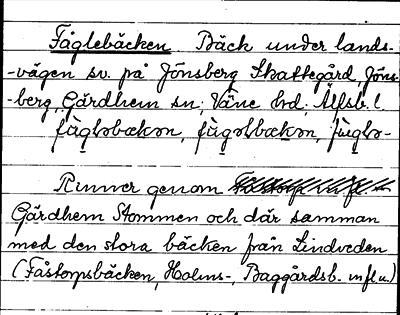 Fåglebäcken Bäck under lands-
-vägen sv. på Jönsberg Skattegård, Jöns-
-berg, Gärdhem sn; Väne hd; Älfsb. l.
Rinner genom
Gärdhem Stommen och där samman
med den stora bäcken från Lindveden
(Fåstorpsbäcken, Holms-, Baggårdsb. m fl n.)